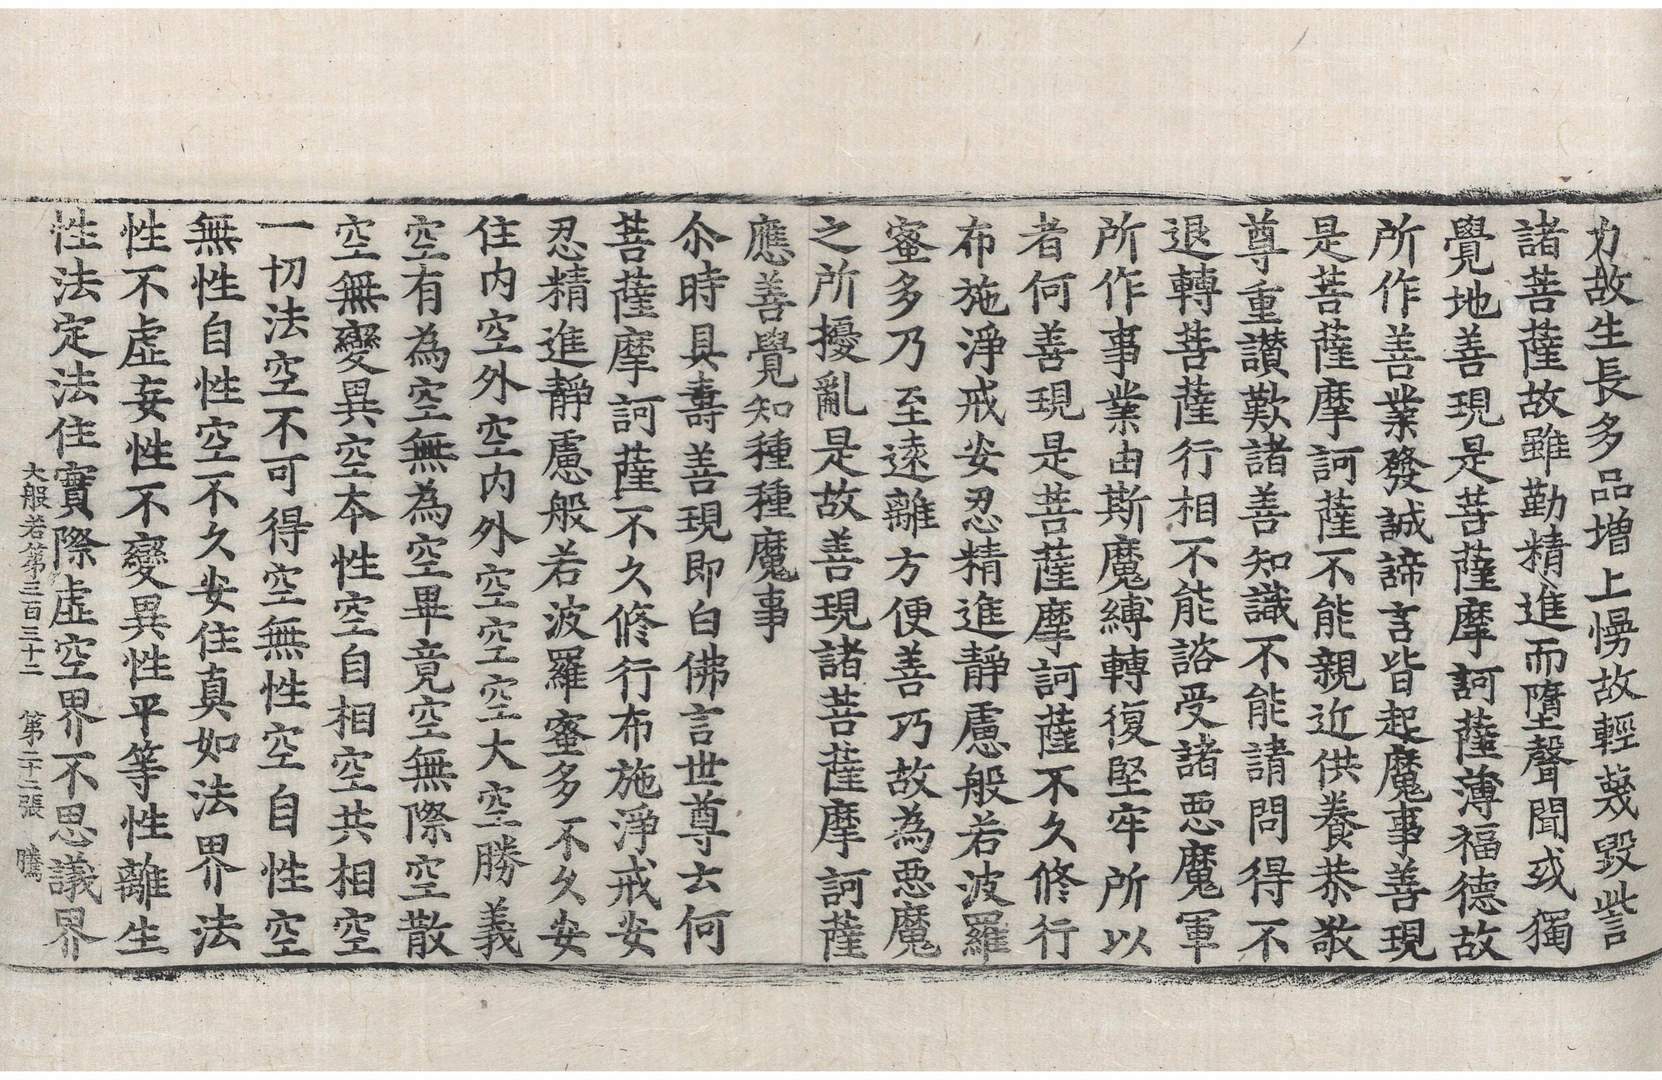 力故生長多品增上慢故輕蔑毀訾
諸菩薩故雖勤精進而墮聲聞或獨
覺地善現是菩薩摩訶薩薄福德故
所作善業發誠諦言皆起魔事善現
是菩薩摩訶薩不能親近供養恭敬
尊重讃歎諸善知識不能請問得不
退轉菩薩行相不能諮受諸惡魔軍
所作事業由斯魔縛轉復堅牢所以
者何善現是菩薩摩訶薩不久修行
布施淨戒安忍精進靜慮般若波羅
蜜多乃至遠離方便善巧故為惡魔
之所擾亂是故善現諸菩薩摩訶薩
應善覺知種種魔事
尒時具壽善現即白佛言世尊云何
菩薩摩訶薩不久修行布施淨戒安
忍精進靜慮般若波羅蜜多不久安
住內空外空內外空空空大空勝義
空有為空無為空畢竟空無際空散
空無變異空本性空自相空共相空
一切法空不可得空無性空自性空
無性自性空不久安住真如法界法
性不虛妄性不變異性平等性離生
性法定法住實際虛空界不思議界
大般若第三百三十二　第二十二張　騰